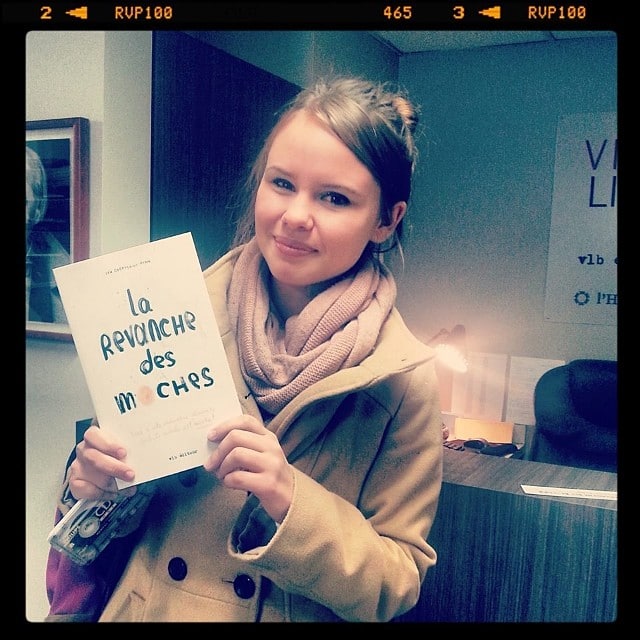 2 RVP100 465 3 RVP100
la
REVANCHE
des
MOCHES
vlb éditeur
VL
LI
vlb é
l'H